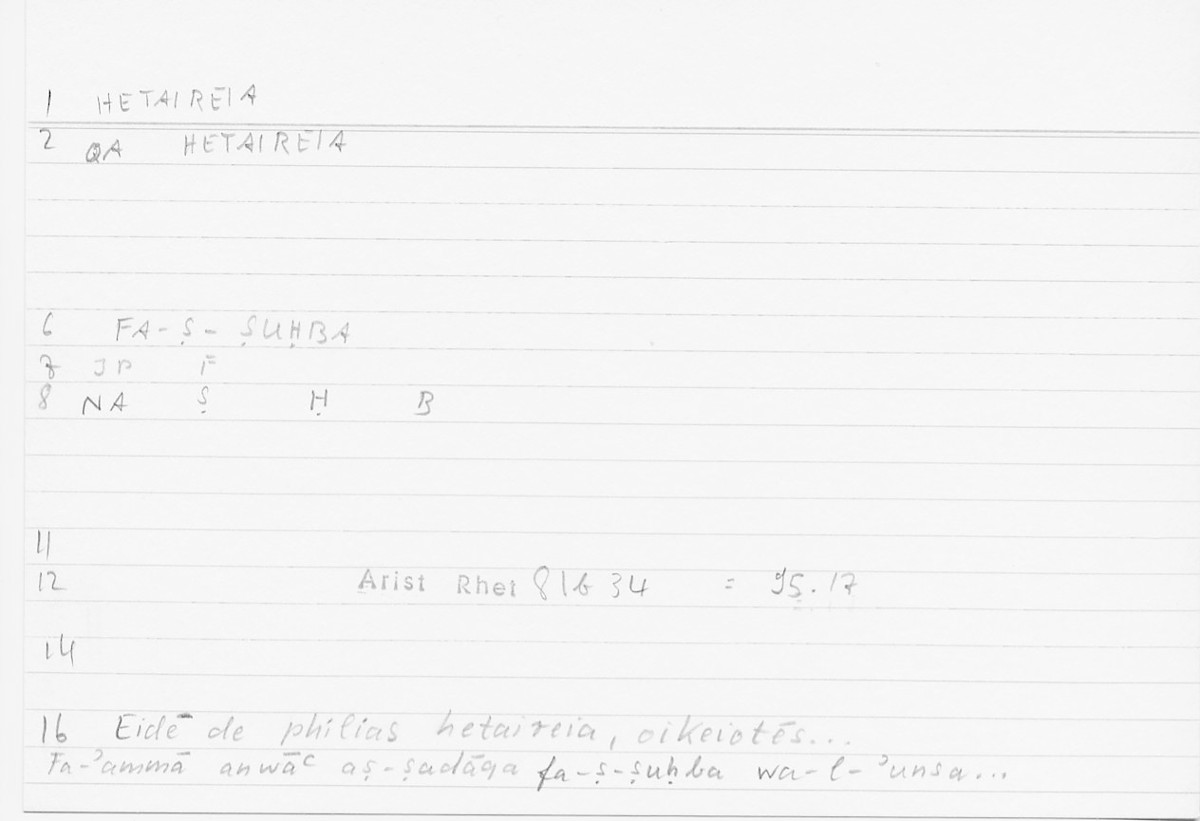 1 HETAIREIA
2 QA HETAIREIA
6 FA-Ṣ-ṢUḤBA
7 JP F
8 NA Ṣ Ḥ B
11
12 Arist Rhet 81b 34 = 95.17
14
16 Eidē de philias hetaireia, oikeiotēs...
Fa-ʾammā anwāʿ aṣ-ṣadāqa fa-ṣ-ṣuḥba wa-l-ʾunsa...